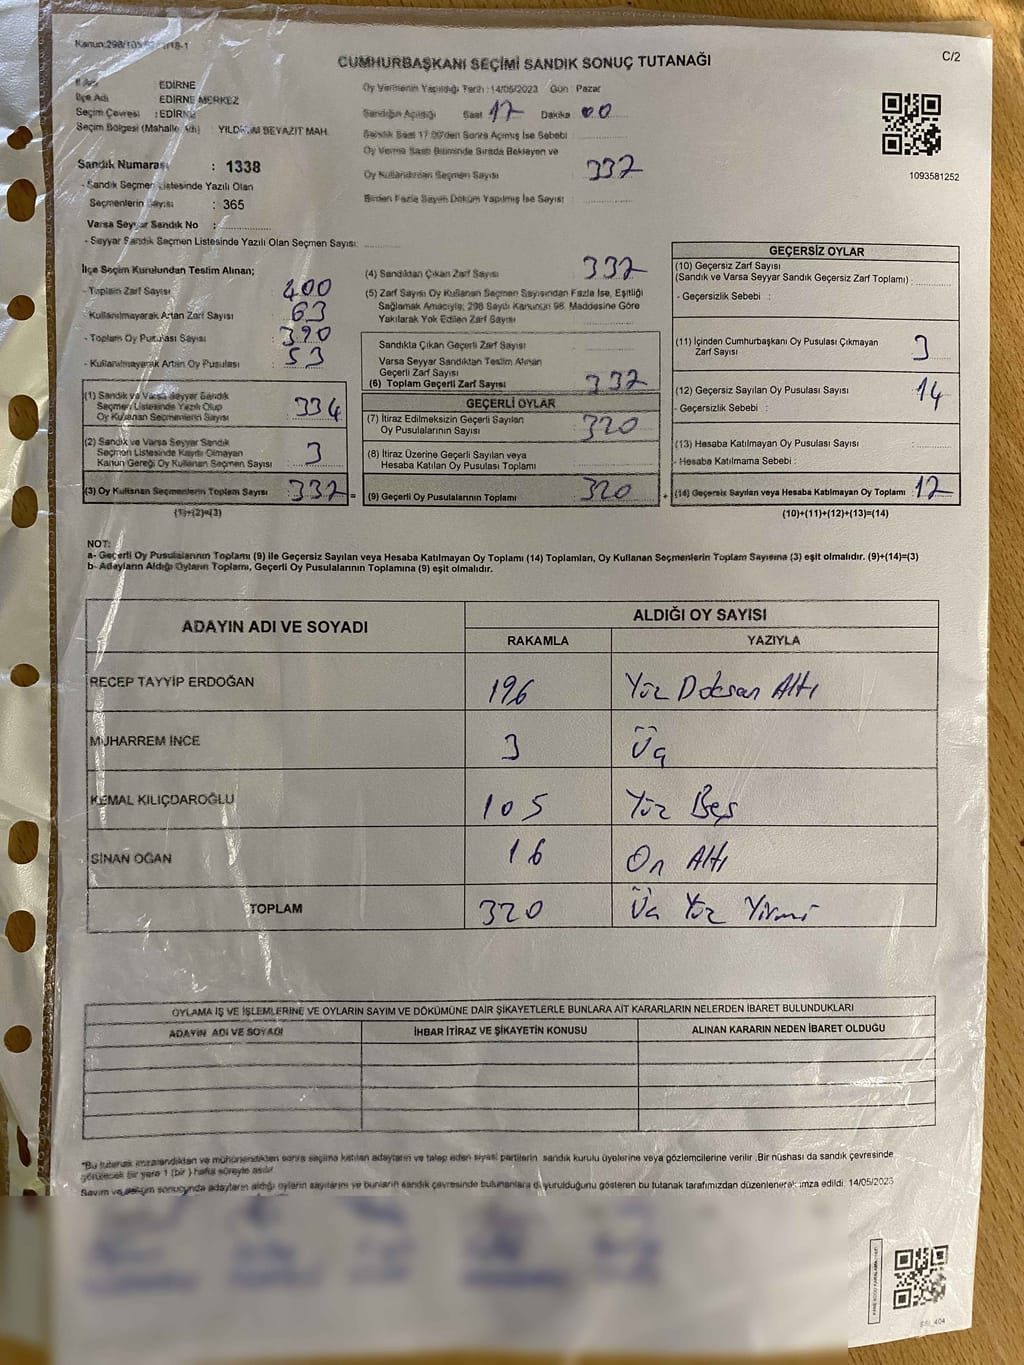 C/2
CUMHURBAŞKANI SEÇİMİ SANDIK SONUÇ TUTANAĞI
İl Adı EDİRNE
İlçe Adı EDİRNE MERKEZ
Seçim Çevresi : EDİRNE
Seçim Bölgesi (Mahalle Adı) : YILDIRIM BEVAZIT MAH.
Sandık Numarası : 1338
- Sandık Seçmen Listesinde Yazılı Olan
Seçmenlerin Sayısı : 365
Varsa Seyyar Sandık No :
- Seyyar Sandık Seçmen Listesinde Yazılı Olan Seçmen Sayısı:
Oy Vermenin Yapıldığı Tarih : 14/05/2023 Gün : Pazar
Sandığın Açıldığı Saat 17 Dakika 00
Sandık Saat 17:00'den Sonra Açılmış İse Sebebi :
Oy Verme Saati Bitiminde Sırada Bekleyen ve
Oy Kullandırılan Seçmen Sayısı 337
Birden Fazla Sayım Döküm Yapılmış İse Sayısı
1093581252
İlçe Seçim Kurulundan Teslim Alınan;
- Toplam Zarf Sayısı 400
- Kullanılmayarak Artan Zarf Sayısı 63
- Toplam Oy Pusulası Sayısı 390
- Kullanılmayarak Artan Oy Pusulası 53
(1) Sandık ve Varsa Seyyar Sandık
Seçmen Listesinde Yazılı Olup
Oy Kullanan Seçmenlerin Sayısı 334
(2) Sandık ve Varsa Seyyar Sandık
Seçmen Listesinde Kayıtlı Olmayan
Kanun Gereği Oy Kullanan Seçmen Sayısı 3
(3) Oy Kullanan Seçmenlerin Toplam Sayısı 337 =
(1)+(2)=(3)
(4) Sandıktan Çıkan Zarf Sayısı 337
(5) Zarf Sayısı Oy Kullanan Seçmen Sayısından Fazla İse, Eşitliği
Sağlamak Amacıyla; 298 Sayılı Kanunun 98. Maddesine Göre
Yakılarak Yok Edilen Zarf Sayısı
Sandıkta Çıkan Geçerli Zarf Sayısı
Varsa Seyyar Sandıktan Teslim Alınan
Geçerli Zarf Sayısı
(6) Toplam Geçerli Zarf Sayısı 337
GEÇERLİ OYLAR
(7) İtiraz Edilmeksizin Geçerli Sayılan
Oy Pusulalarının Sayısı 320
(8) İtiraz Üzerine Geçerli Sayılan veya
Hesaba Katılan Oy Pusulası Toplamı
(9) Geçerli Oy Pusulalarının Toplamı 320 +
GEÇERSİZ OYLAR
(10) Geçersiz Zarf Sayısı
(Sandık ve Varsa Seyyar Sandık Geçersiz Zarf Toplamı) :
- Geçersizlik Sebebi :
(11) İçinden Cumhurbaşkanı Oy Pusulası Çıkmayan
Zarf Sayısı 3
(12) Geçersiz Sayılan Oy Pusulası Sayısı 14
- Geçersizlik Sebebi :
(13) Hesaba Katılmayan Oy Pusulası Sayısı
- Hesaba Katılmama Sebebi :
(14) Geçersiz Sayılan veya Hesaba Katılmayan Oy Toplamı 17
(10)+(11)+(12)+(13)=(14)
NOT:
a- Geçerli Oy Pusulalarının Toplamı (9) ile Geçersiz Sayılan veya Hesaba Katılmayan Oy Toplamı (14) Toplamları, Oy Kullanan Seçmenlerin Toplam Sayısına (3) eşit olmalıdır. (9)+(14)=(3)
b- Adayların Aldığı Oyların Toplamı, Geçerli Oy Pusulalarının Toplamına (9) eşit olmalıdır.
ADAYIN ADI VE SOYADI ALDIĞI OY SAYISI
RAKAMLA YAZIYLA
RECEP TAYYİP ERDOĞAN 196 Yüz Doksan Altı
MUHARREM İNCE 3 Üç
KEMAL KILIÇDAROĞLU 105 Yüz Beş
SİNAN OĞAN 16 On Altı
TOPLAM 320 Üç Yüz Yirmi
OYLAMA İŞ VE İŞLEMLERİNE VE OYLARIN SAYIM VE DÖKÜMÜNE DAİR ŞİKAYETLERLE BUNLARA AİT KARARLARIN NELERDEN İBARET BULUNDUKLARI
ADAYIN ADI VE SOYADI İHBAR İTİRAZ VE ŞİKAYETİN KONUSU ALINAN KARARIN NEDEN İBARET OLDUĞU
*Bu tutanak imzalandıktan ve mühürlendikten sonra seçime katılan adayların ve talep eden siyasi partilerin sandık kurulu üyelerine veya gözlemcilerine verilir .Bir nüshası da sandık çevresinde
görülecek bir yere 1 (bir ) hafta süreyle asılır.
Sayım ve döküm sonucunda adayların aldığı oyların sayılarını ve bunların sandık çevresinde bulunanlara duyurulduğunu gösteren bu tutanak tarafımızdan düzenlenerek imza edildi. 14/05/2023